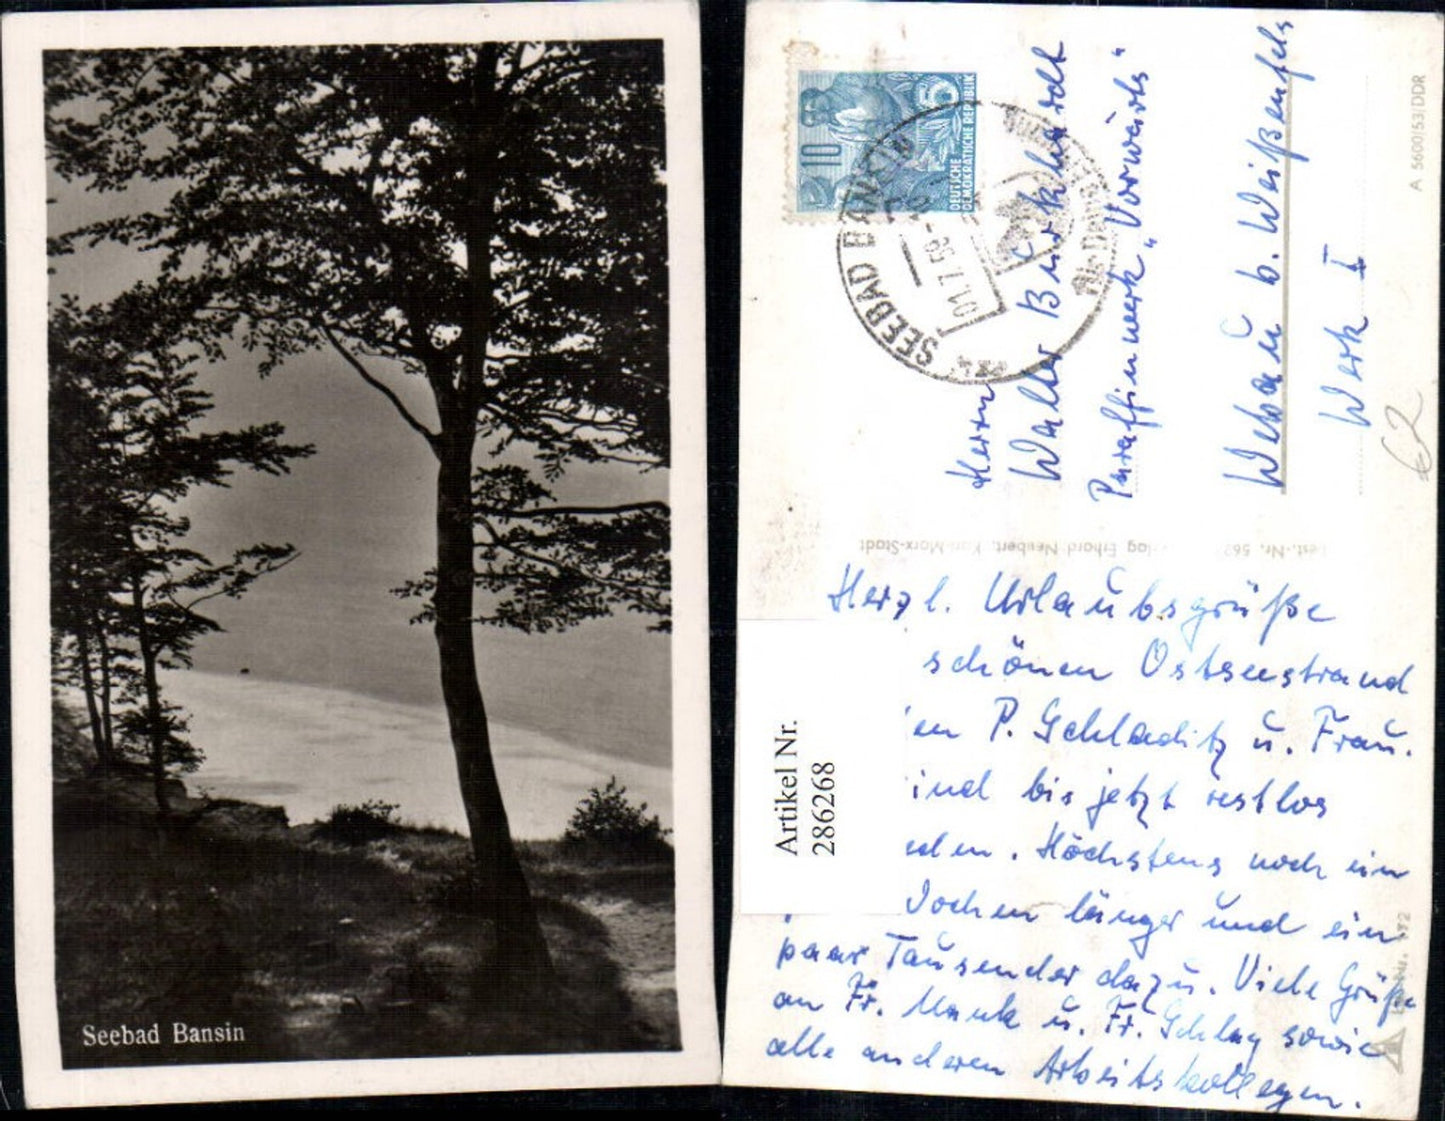 Seebad Bansin
10
5
DEUTSCHE
DEMOKRATISCHE REPUBLIK
SEEBAD BANSIN
01.7.58
Herrn
Walter Burkhardt
Paraffinwerk „Vorwärts“
Webau b. Weißenfels
Werk I
62
A 5600/53/DDR
Erhard Neubert, Karl-Marx-Stadt
Best.-Nr.
Artikel Nr.
286268
Herzl. Urlaubsgrüße
schönen Ostseestrand
en P. Schladitz u. Frau.
ind bis jetzt restlos
eden. Höchstens noch ein
Wochen länger und ein
paar Tausender dazu. Viele Grüße
an Fr. Mank u. Fr. Schlag sowie
alle anderen Arbeitskollegen.